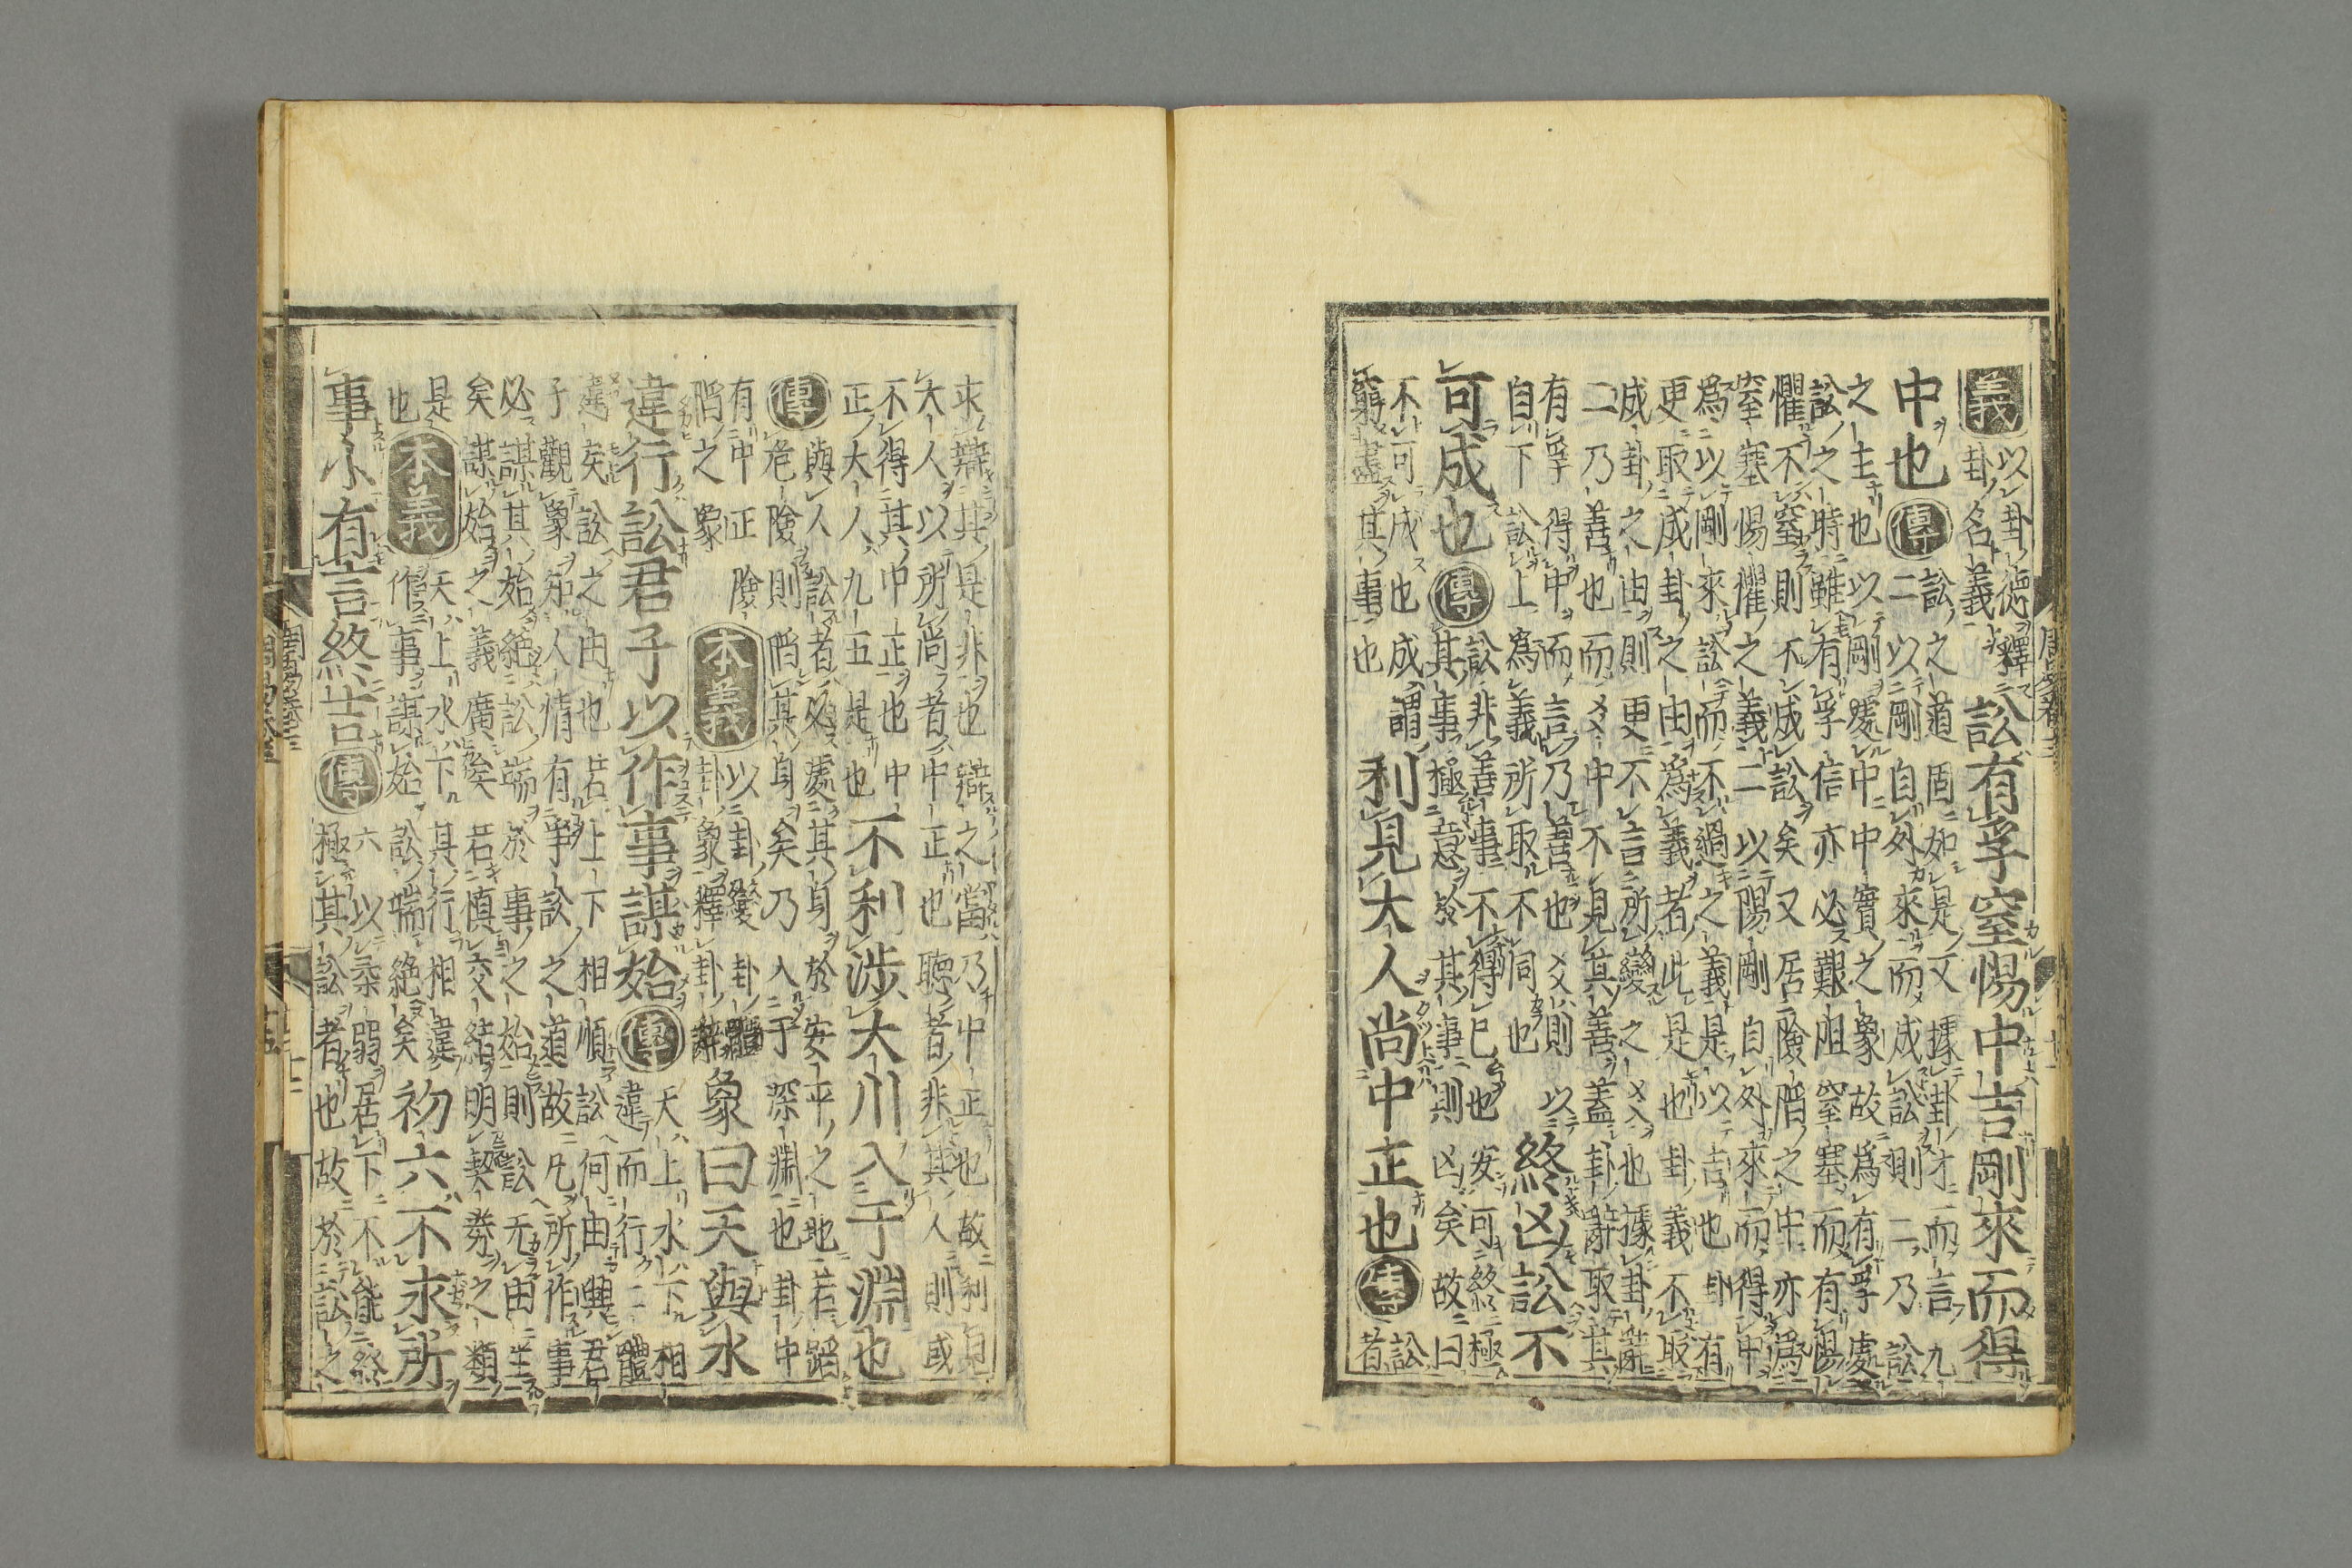 義以卦德釋
卦名義
訟有孚窒惕中吉剛來而得
中也傳訟之道固如是又據卦才而言九
二以剛自外來而成訟則二乃訟
之主也以剛處中中實之象故爲有孚處
訟之時雖有孚信亦必艱阻窒塞而有惕
懼不窒則不成訟矣又居險陷之中亦爲
窒塞惕懼之義二以陽剛自外來而得中
爲以剛來訟而不過之義是以吉也卦有
更取成卦之由爲義者此是也卦義不取
成卦之由則更不言所變之爻也據卦辭
二乃善也而爻中不見其善蓋卦辭取其
有孚得中而言乃善也爻則以
自下訟上爲義所取不同也
終凶訟不
可成也傳訟非善事不得已也安可終極
其事極意於其事則凶矣故曰
不可成也成謂
窮盡其事也
利見大人尚中正也傳訟
者
求辯其是非也辯之當乃中正也故利見
大人以所尚者中正也聽者非其人則或
不得其中正也中
正大人九五是也
不利涉大川入于淵也
傳與人訟者必處其身於安平之地若蹈
危險則陷其身矣乃入于深淵也卦中
有中正險
陷之象
本義以卦變卦體
卦象釋卦辭
象曰天與水
違行訟君子以作事謀始傳天上水下相
違而行二體
違矣訟之由也若上下相順訟何由興君
子觀象知人情有爭訟之道故凡所作事
必謀其始絕訟端於事之始則訟无由生
矣謀始之義廣矣若慎交結明契券之類
是
也
本義天上水下其行相違
作事謀始訟端絕矣
初六不永所
事小有言終吉傳六以柔弱居下不能終
極其訟者也故於訟之